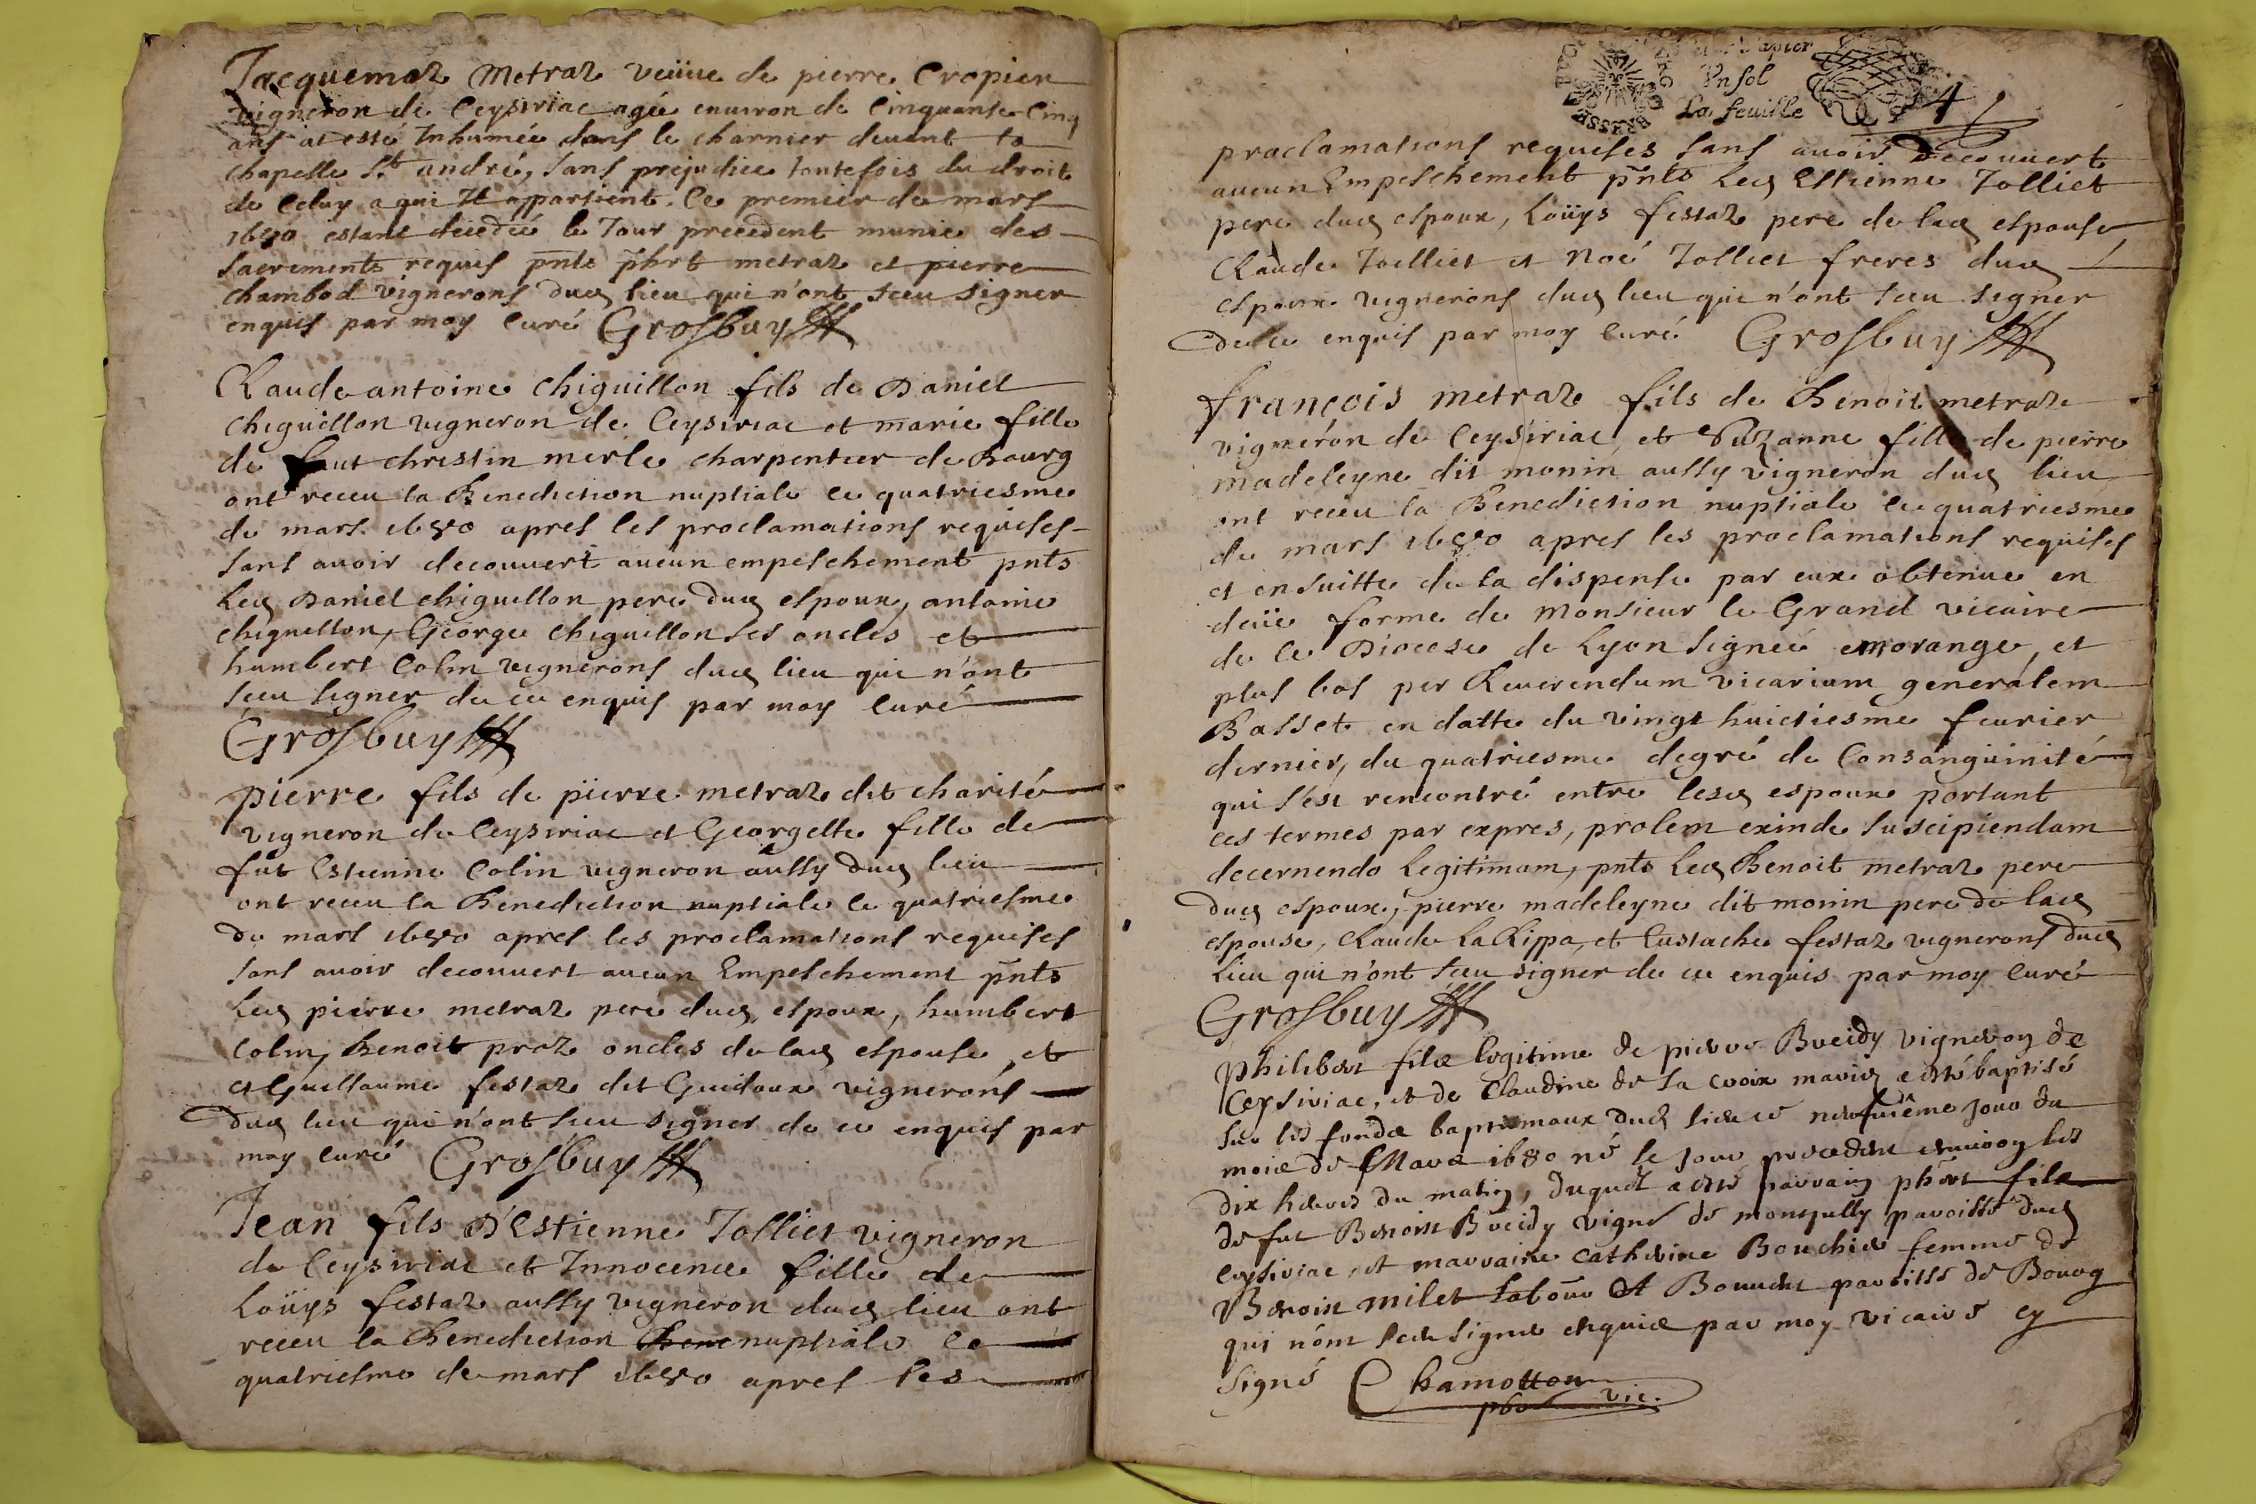 Jacquemaz Metraz veüue de pierre Cropier
vigneron de Ceysiriac agée enuiron de Cinquante Cinq
ans at esté Inhumée dans le charnier deuant la
chapelle St andré, sans prejudice toutesois du droit
de Celuy a qui Il appartient. Ce premier de mars
1680 estant decedée le Jour precedent munie des
sacrements requis pnts phbrt metraz et pierre
chambod vignerons dud lieu qui n'ont sceu signer
enquis par moy Curé Grosbuy
Claude antoine chiguillon fils de Daniel
chiguillon vigneron de Ceysiriac et marie fille
de faut christin merle charpentier de Bourg
ont receu la Benediction nuptiale ce quatriesme
de mars 1680 apres les proclamations requises
sans auoir decouuert aucun empeschement pnts
Led Daniel chiguillon pere dud espoux, antoine
chiguillon, George chiguillon ses oncles et
humbert Colin vignerons dud lieu qui n'ont
sceu signer de ce enquis par moy Curé
Grosbuy
pierre fils de pierre metraz dit charité
vigneron de Ceysiriac et Georgette fille de
fut Estienne Colin vigneron aussy dud lieu
ont receu la Benediction nuptiale le quatriesme
de mars 1680 apres les proclamations requises
sans auoir decouuert aucun Empeschement pnts
Led pierre metraz pere dud espoux, humbert
Colin, Benoit proz oncles de lad espouse, et
et Guillaume festaz dit Guidoux vignerons
dud lieu qui n'ont sceu signer de ce enquis par
moy Curé Grosbuy
Jean fils D'Estienne Jolliet vigneron
de Ceysiriac et Innocence fille de
Loüys festaz aussy vigneron dud lieu ont
receu la Benediction Bene nuptiale ce
quatriesme de mars 1680 apres les
Papier
Vn sol
La feuille
4
proclamations requises sans auoir decouuert
aucun Empeschement pnts Led Estienne Jolliet
pere dud espoux, Loüys festaz pere de lad espouse
Claude Jolliet et Noé Jolliet freres dud
espoux vignerons dud lieu qui n'ont sceu signer
de ce enquis par moy Curé Grosbuy
françois metraz fils de Benoit metraz
vigneron de Ceysiriac et Suzanne fille de pierre
madeleyne dit monin aussy vigneron dud lieu
ont receu la Benediction nuptiale ce quatriesme
de mars 1680 apres les proclamations requises
et ensuitte de la dispense par eux obtenue en
deüe forme de Monsieur le Grand vicaire
de ce Diocese de Lyon signée morange, et
plus bas per Reuerendum vicarium generalem
Basset en datte du vingt huictiesme feurier
dernier, du quatriesme degré de Consanguinité
qui s'est rencontré entre lesd espoux portant
ces termes par expres, prolem exinde suscipiendam
decernendo Legitimam, pnts Led Benoit metraz pere
dud espoux, pierre madeleyne dit monin pere de lad
espouse, Claude La Rippa, et Eustache festaz vignerons dud
Lieu qui n'ont sceu signer de ce enquis par moy Curé
Grosbuy
Philibert filz legitime de pierre Breidy vigneron de
Ceysiriac, et de Claudine de la croix mariez a esté baptisé
sur les fondz baptismaux dud lieu ce neufuiême jour du
mois de Mars 1680 né le jour precedent enuiron les
dix heures du matin, duquel a esté parrain phbert filz
de fut Benoist Breidy vigneron de montjully parroisse dud
ceysiriac, et marraine catherine Bouchier femme de
Benoist milet labour parroisse de Bourg
qui n'ont sceu signer enquis par moy vicaire cy
signé Chamotton
pbr vic.